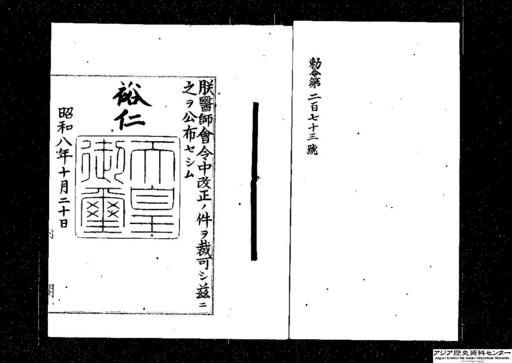 勅令第二百七十三號
朕醫師會令中改正ノ件ヲ裁可シ茲ニ
之ヲ公布セシム
裕仁
天皇
御璽
昭和八年十月二十日
内閣
アジア歴史資料センター
Japan Center for Asian Historical Records